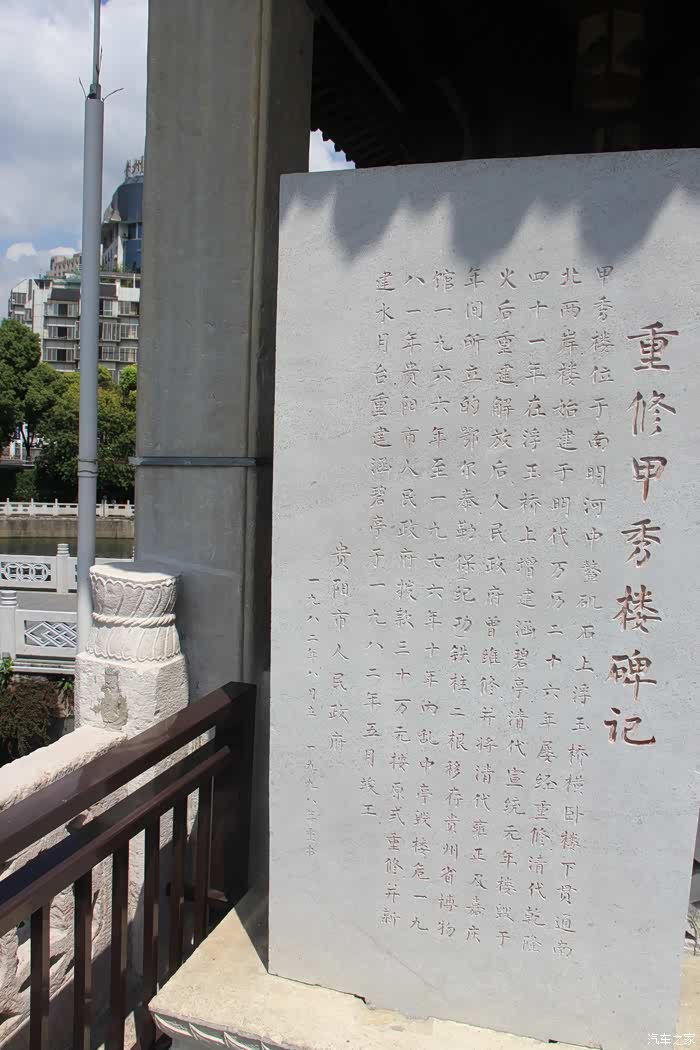 重修甲秀楼碑记
甲秀楼位于南明河中鳌矶石上浮玉桥横卧楼下贯通南
北两岸楼始建于明代万历二十六年屡经重修清代乾隆
四十一年在浮玉桥上增建涵碧亭清代宣统元年楼毁于
火后重建解放后人民政府曾维修并将清代雍正及嘉庆
年间所立的鄂尔泰勒保纪功铁柱二根移存贵州省博物
馆一九六六年至一九七六年十年内乱中亭毁楼危一九
八一年贵阳市人民政府拨款三十万元按原式重修并新
建水月台重建涵碧亭于一九八二年五月竣工
贵阳市人民政府
一九八二年八月立 一九九八年
汽车之家